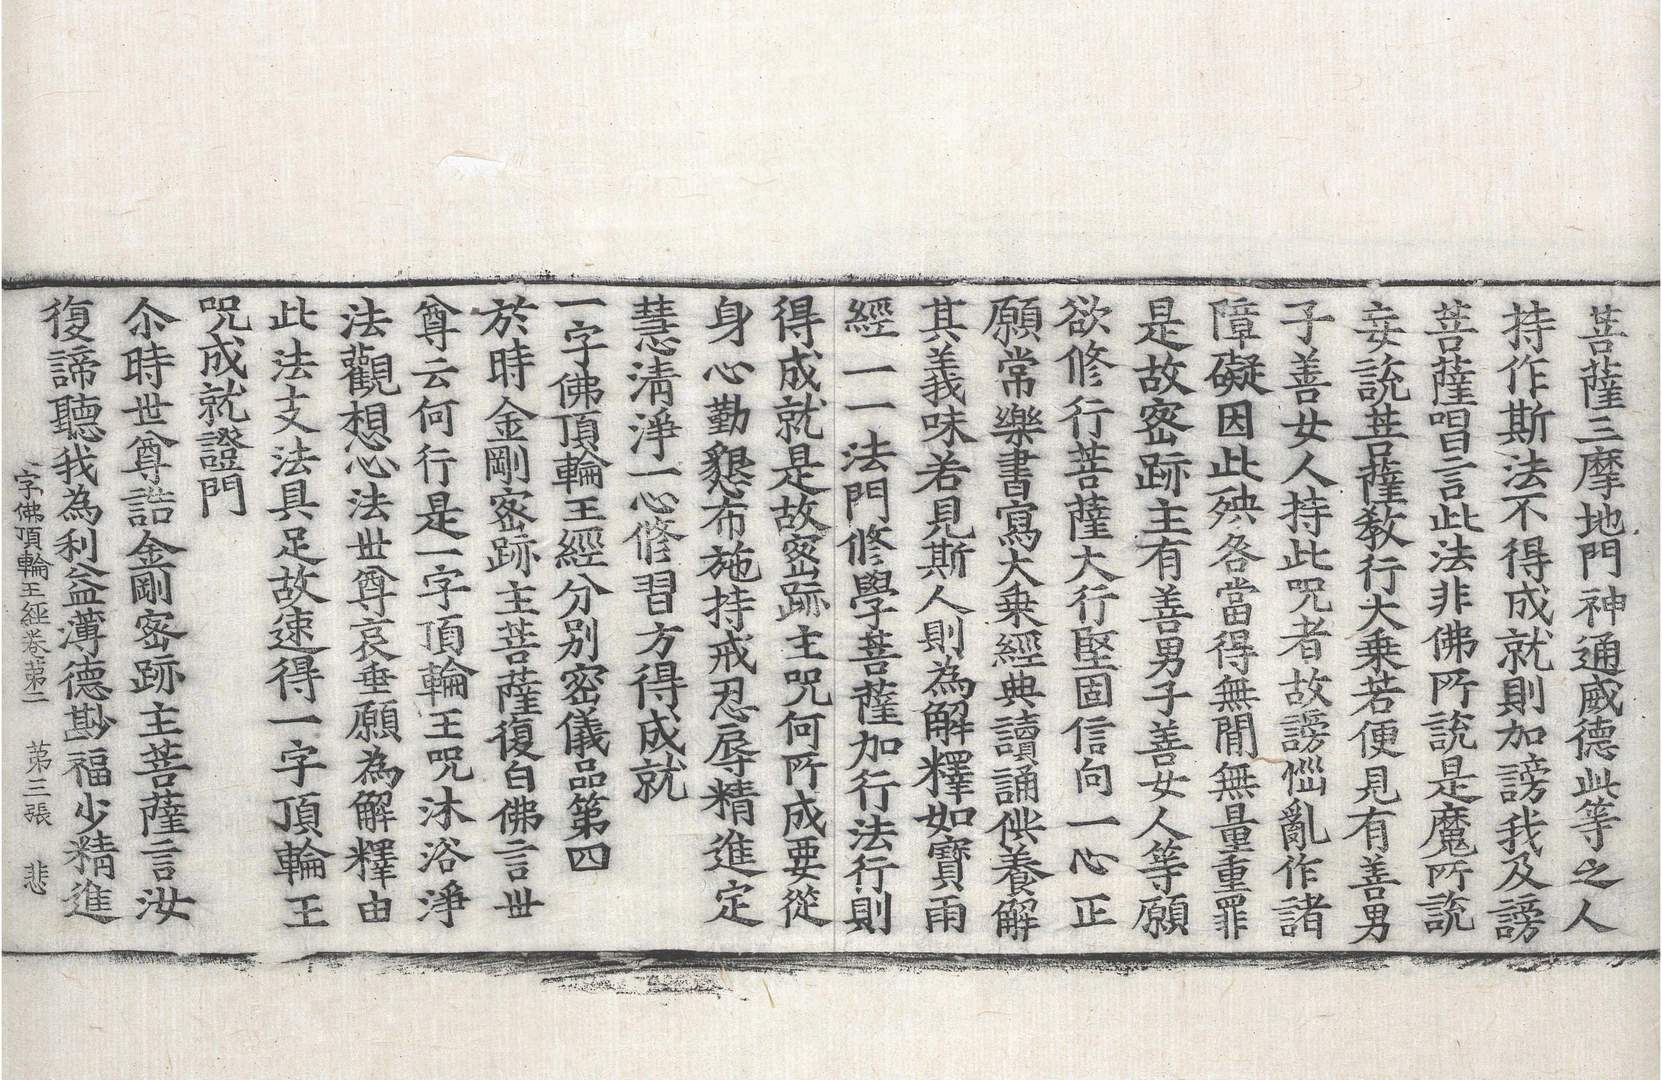 菩薩三摩地門神通威德此等之人
持作斯法不得成就則加謗我及謗
菩薩唱言此法非佛所說是魔所說
妄說菩薩教行大乘若便見有善男
子善女人持此呪者故謗惱亂作諸
障礙因此殃咎當得無間無量重罪
是故密跡主有善男子善女人等願
欲修行菩薩大行堅固信向一心正
願常樂書寫大乘經典讀誦供養解
其義味若見斯人則為解釋如寶雨
經一一法門修學菩薩加行法行則
得成就是故密跡主呪何所成要從
身心勤懇布施持戒忍辱精進定
慧清淨一心修習方得成就
一字佛頂輪王經分別密儀品第四
於時金剛密跡主菩薩復白佛言世
尊云何行是一字頂輪王呪沐浴淨
法觀想心法世尊哀垂願為解釋由
此法支法具足故速得一字頂輪王
呪成就證門
尒時世尊誥金剛密跡主菩薩言汝
復諦聽我為利益薄德尠福少精進
一字佛頂輪王經卷第二 第三張 悲